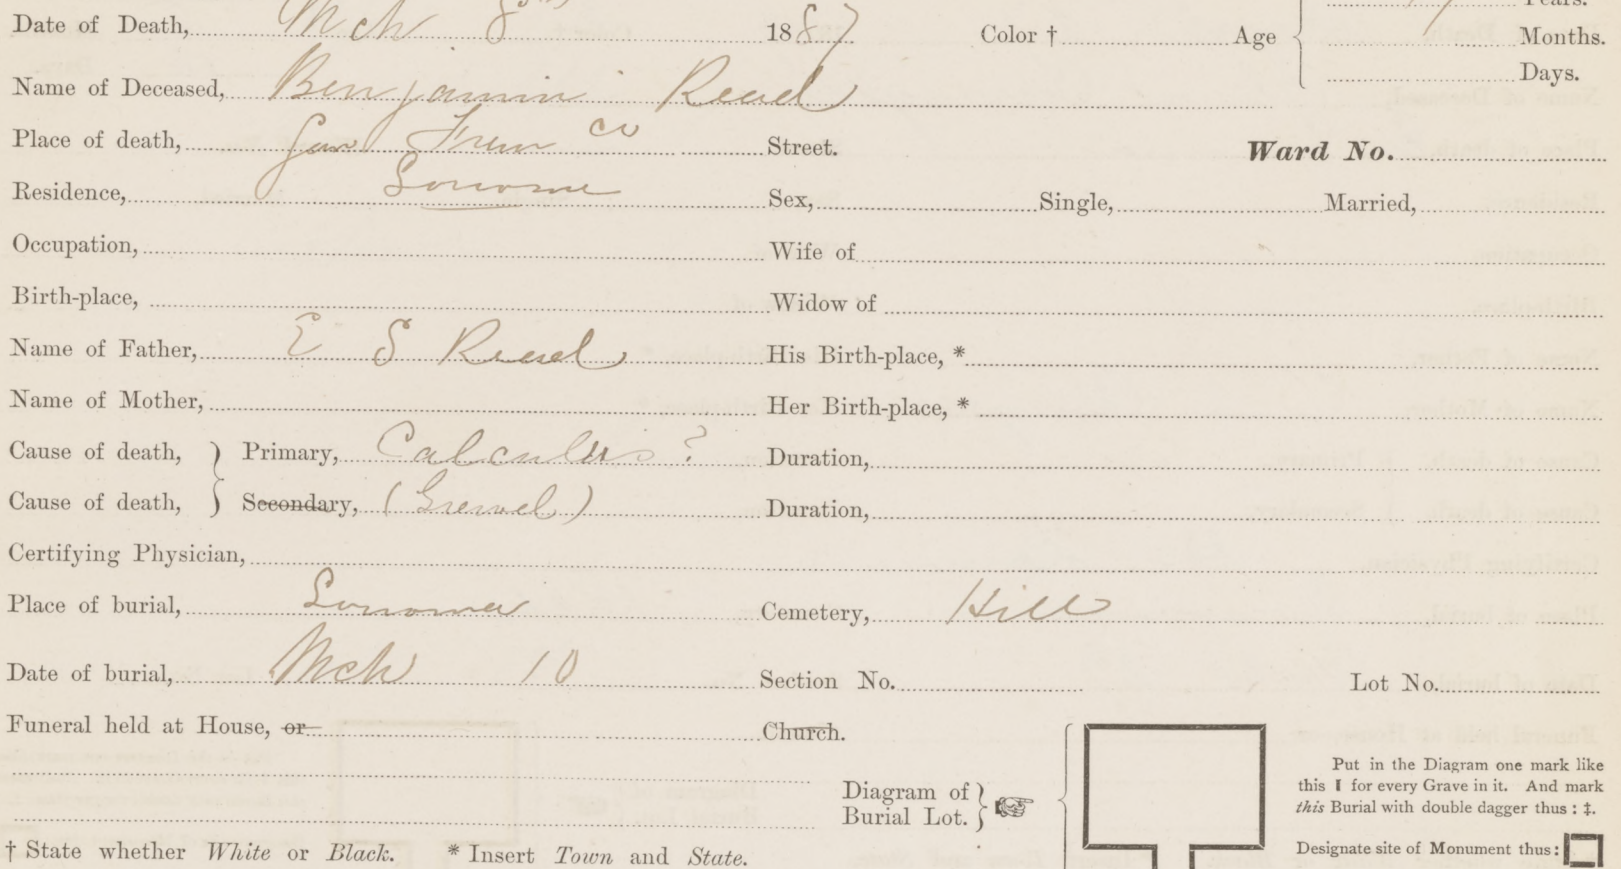 Years.
Date of Death, Mch 8th 1887 Color † Age Months.
Days.
Name of Deceased, Benjamin Reed
Place of death, San Fran co Street. Ward No.
Residence, Sonoma Sex, Single, Married,
Occupation, Wife of
Birth-place, Widow of
Name of Father, E S Reed His Birth-place, *
Name of Mother, Her Birth-place, *
Cause of death, Primary, Calculus? Duration,
Cause of death, Secondary, (Grewel) Duration,
Certifying Physician,
Place of burial, Sonoma Cemetery, Hill
Date of burial, Mch 10 Section No. Lot No.
Funeral held at House, or Church.
Put in the Diagram one mark like
this I for every Grave in it. And mark
this Burial with double dagger thus : ‡.
Diagram of
Burial Lot.
Designate site of Monument thus:
† State whether White or Black. * Insert Town and State.